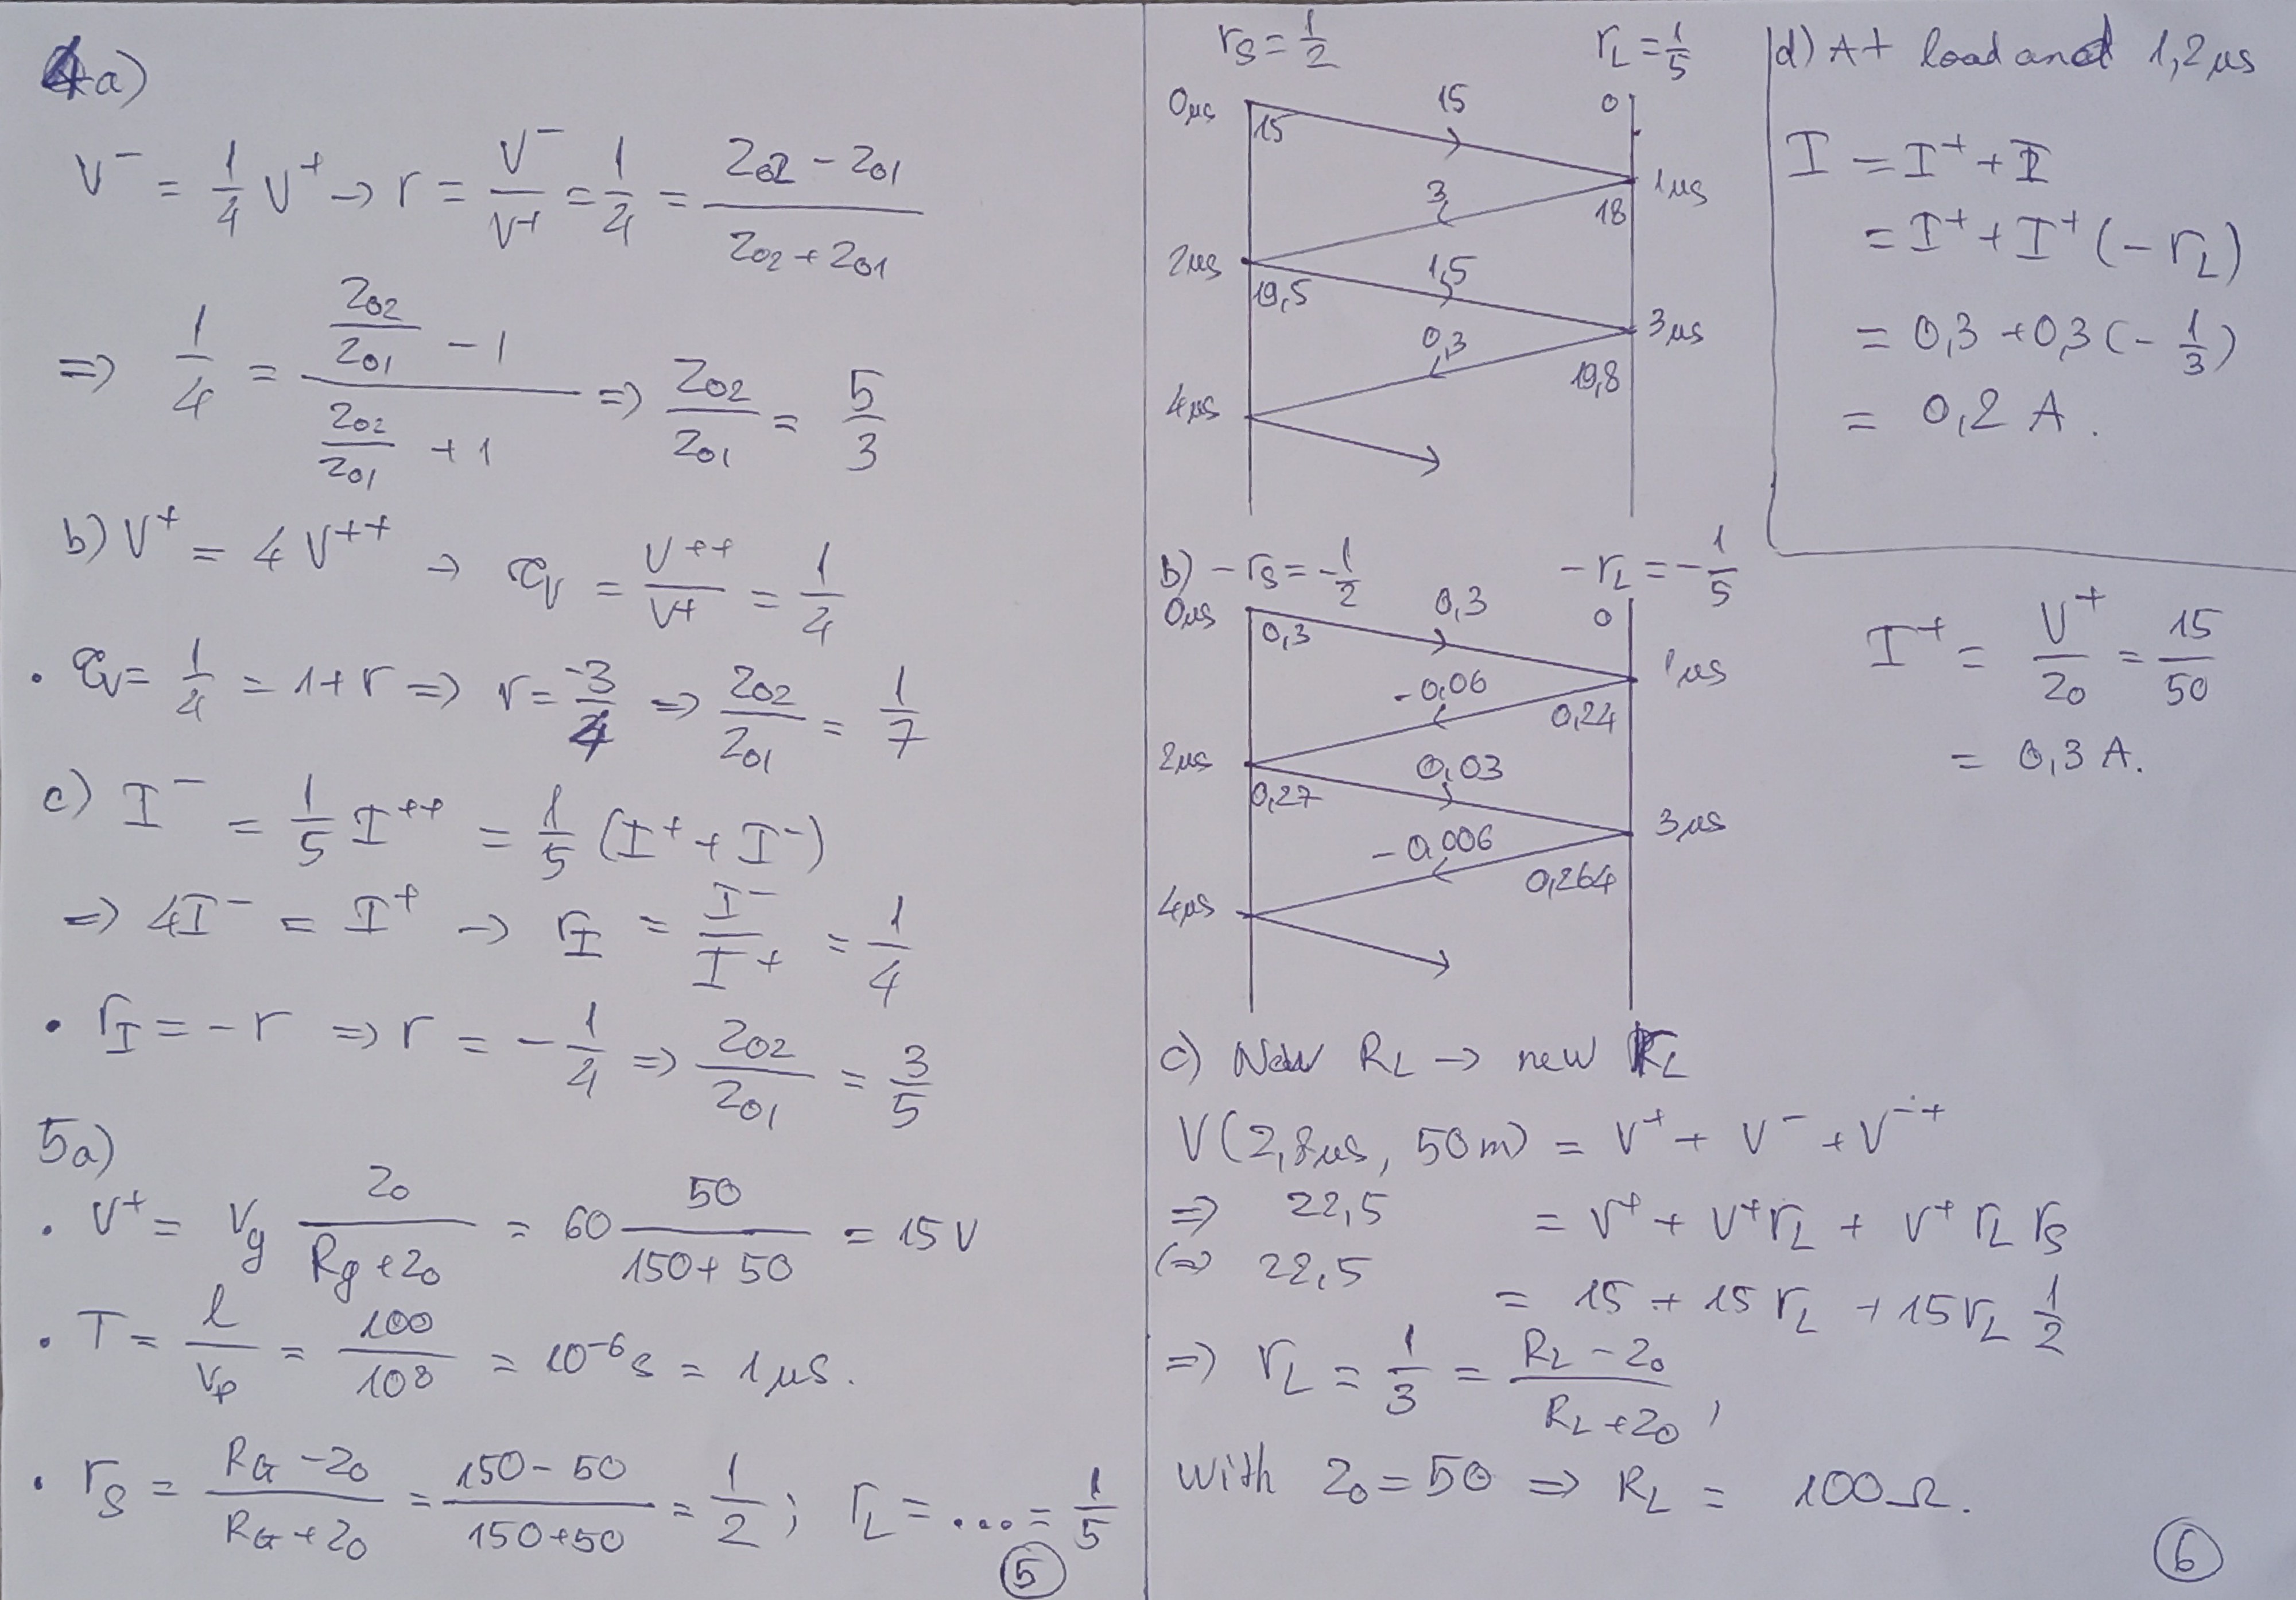 4a)
V⁻ = 1/4 V⁺ → r = V⁻/V⁺ = 1/4 = (Z02 - Z01)/(Z02 + Z01)
=> 1/4 = (Z02/Z01 - 1)/(Z02/Z01 + 1) => Z02/Z01 = 5/3
b) V⁺ = 4V⁺⁺ → τv = V⁺⁺/V⁺ = 1/4
• τv = 1/4 = 1+r => r = -3/4 => Z02/Z01 = 1/7
c) I⁻ = 1/5 I⁺⁺ = 1/5 (I⁺ + I⁻)
=> 4I⁻ = I⁺ → rI = I⁻/I⁺ = 1/4
• rI = -r => r = -1/4 => Z02/Z01 = 3/5
5a)
• V⁺ = Vg Z0/(Rg+Z0) = 60 50/(150+50) = 15V
• T = l/vp = 100/10⁸ = 10⁻⁶s = 1μs.
• rS = (RG-Z0)/(RG+Z0) = (150-50)/(150+50) = 1/2; rL = ... = 1/5
5
rS = 1/2 rL = 1/5
0μs 15 0
15
1μs
3
18
2μs
1,5
19,5
3μs
0,3
19,8
4μs
b) -rS = -1/2 -rL = -1/5
0μs 0,3 0
0,3
1μs
-0,06
0,24
2μs
0,03
0,27
3μs
-0,006
0,264
4μs
c) New RL → new rL
V(2,8μs, 50m) = V⁺ + V⁻ + V⁻⁺
=> 22,5 = V⁺ + V⁺rL + V⁺ rL rS
<=> 22,5 = 15 + 15 rL + 15 rL 1/2
=> rL = 1/3 = (RL - Z0)/(RL + Z0),
with Z0 = 50 => RL = 100Ω.
d) At load and 1,2μs
I = I⁺ + I
= I⁺ + I⁺(-rL)
= 0,3 + 0,3(-1/3)
= 0,2 A.
I⁺ = V⁺/Z0 = 15/50
= 0,3 A.
6